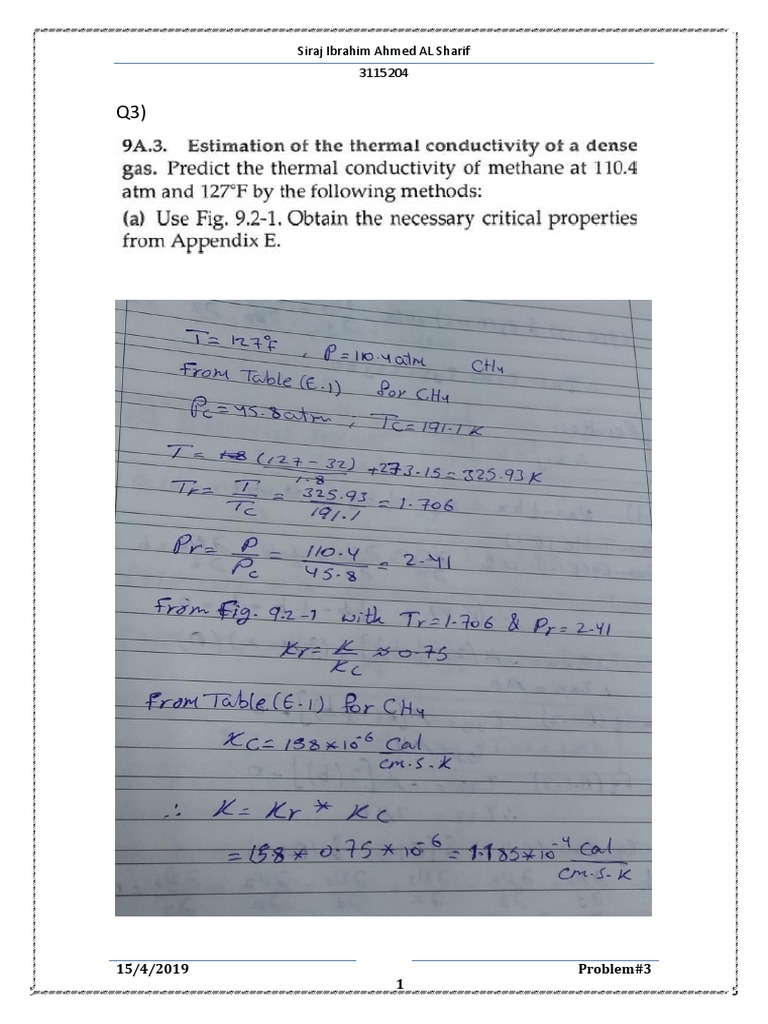 Siraj Ibrahim Ahmed AL Sharif
3115204
Q3)
9A.3. Estimation of the thermal conductivity of a dense
gas. Predict the thermal conductivity of methane at 110.4
atm and 127°F by the following methods:
(a) Use Fig. 9.2-1. Obtain the necessary critical properties
from Appendix E.
T = 127°F , P = 110.4 atm CH4
From Table (E.1) for CH4
Pc = 45.8 atm ; Tc = 191.1 K
T = (127 - 32) / 1.8 + 273.15 = 325.93 K
Tr = T / Tc = 325.93 / 191.1 = 1.706
Pr = P / Pc = 110.4 / 45.8 = 2.41
From Fig. 9.2-1 with Tr = 1.706 & Pr = 2.41
Kr = K / Kc ≈ 0.75
From Table (E.1) for CH4
Kc = 158 * 10^-6 Cal / cm.s.K
∴ K = Kr * Kc
= 158 * 0.75 * 10^-6 = 1.185 * 10^-4 Cal / cm.s.K
15/4/2019 Problem#3
1